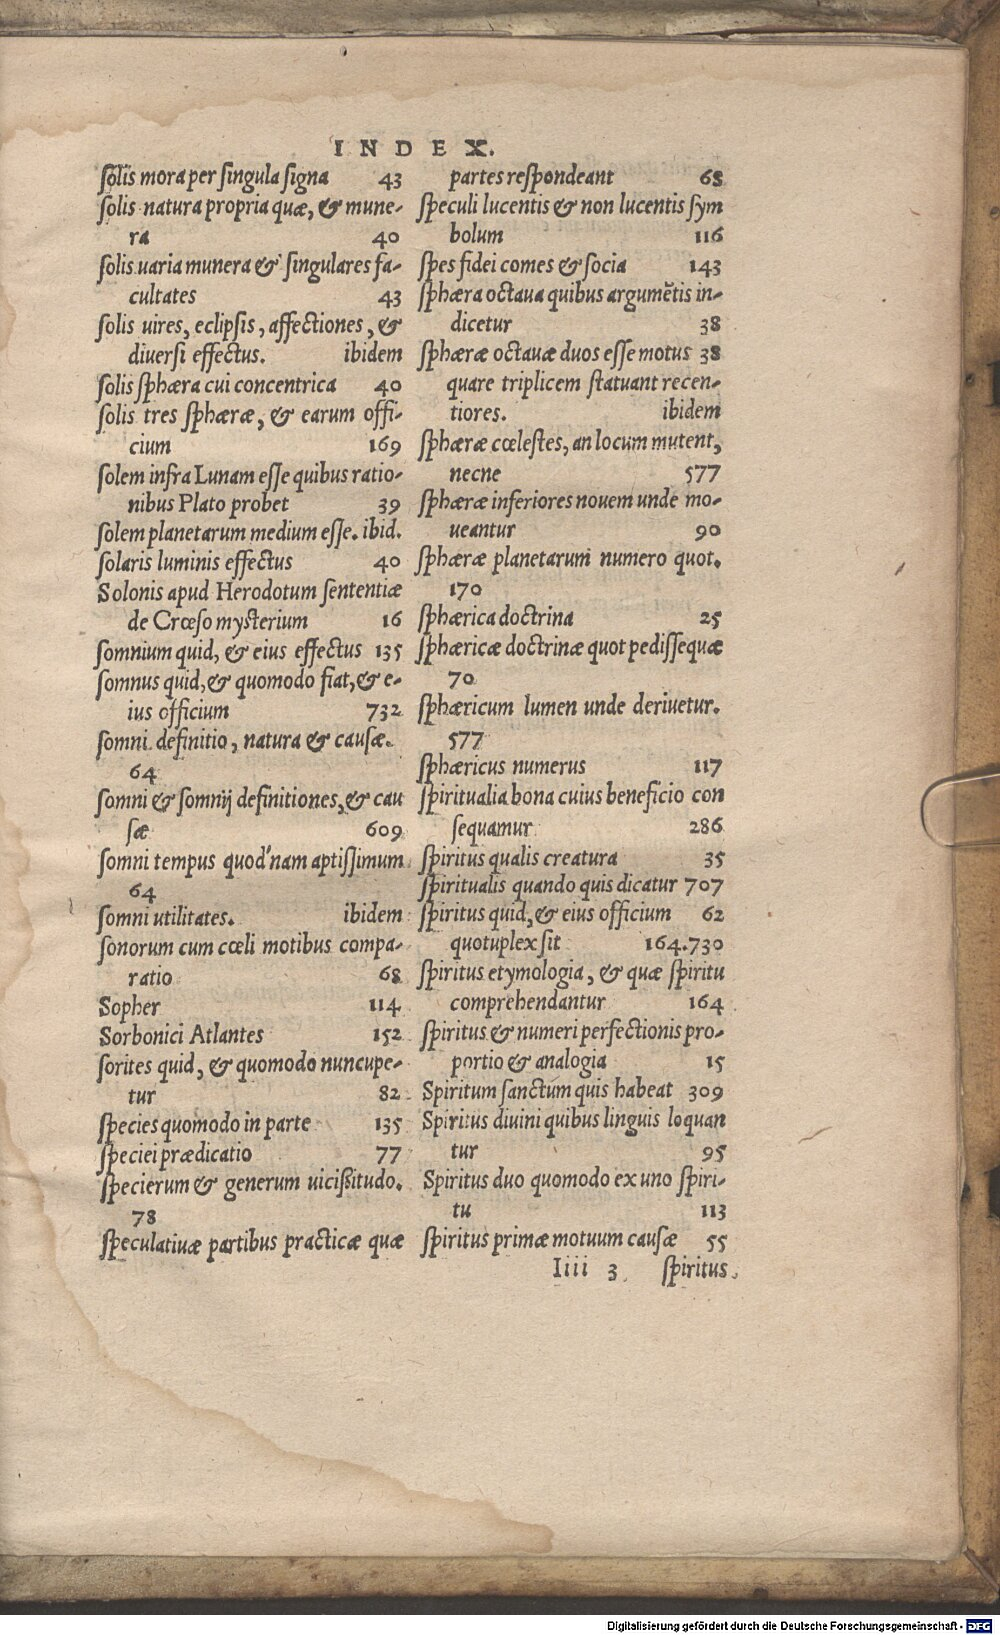 INDEX.
ſolis mora per ſingula ſigna 43
ſolis natura propria quæ, & mune-
ra 40
ſolis uaria munera & ſingulares fa-
cultates 43
ſolis uires, eclipſis, affectiones, &
diuerſi effectus. ibidem
ſolis ſphæra cui concentrica 40
ſolis tres ſphæræ, & earum offi-
cium 169
ſolem infra Lunam eſſe quibus ratio-
nibus Plato probet 39
ſolem planetarum medium eſſe. ibid.
ſolaris luminis effectus 40
Solonis apud Herodotum ſententiæ
de Crœſo myſterium 16
ſomnium quid, & eius effectus 135
ſomnus quid, & quomodo fiat, & e-
ius officium 732
ſomni definitio, natura & cauſæ.
64
ſomni & ſomnij definitiones, & cau
ſæ 609
ſomni tempus quod'nam aptiſſimum
64
ſomni utilitates. ibidem
ſonorum cum cœli motibus compa-
ratio 68
Sopher 114
Sorbonici Atlantes 152
ſorites quid, & quomodo nuncupe-
tur 82
ſpecies quomodo in parte 135
ſpeciei prædicatio 77
ſpecierum & generum uicißitudo.
78
ſpeculatiuæ partibus practicæ quæ
partes reſpondeant 68
ſpeculi lucentis & non lucentis ſym
bolum 116
ſpes fidei comes & ſocia 143
ſphæra octaua quibus argumẽtis in-
dicetur 38
ſphæræ octauæ duos eſſe motus 38
quare triplicem ſtatuant recen-
tiores. ibidem
ſphæræ cœleſtes, an locum mutent,
necne 577
ſphæræ inferiores nouem unde mo-
ueantur 90
ſphæræ planetarum numero quot.
170
ſphærica doctrina 25
ſphæricæ doctrinæ quot pediſſequæ
70
ſphæricum lumen unde deriuetur.
577
ſphæricus numerus 117
ſpiritualia bona cuius beneficio con
ſequamur 286
ſpiritus qualis creatura 35
ſpiritualis quando quis dicatur 707
ſpiritus quid, & eius officium 62
quotuplex ſit 164.730
ſpiritus etymologia, & quæ ſpiritu
comprehendantur 164
ſpiritus & numeri perfectionis pro-
portio & analogia 15
Spiritum ſanctum quis habeat 309
Spiritus diuini quibus linguis loquan
tur 95
Spiritus duo quomodo ex uno ſpiri-
tu 113
ſpiritus primæ motuum cauſæ 55
Iiii 3 ſpiritus.
Digitalisierung gefördert durch die Deutsche Forschungsgemeinschaft - DFG